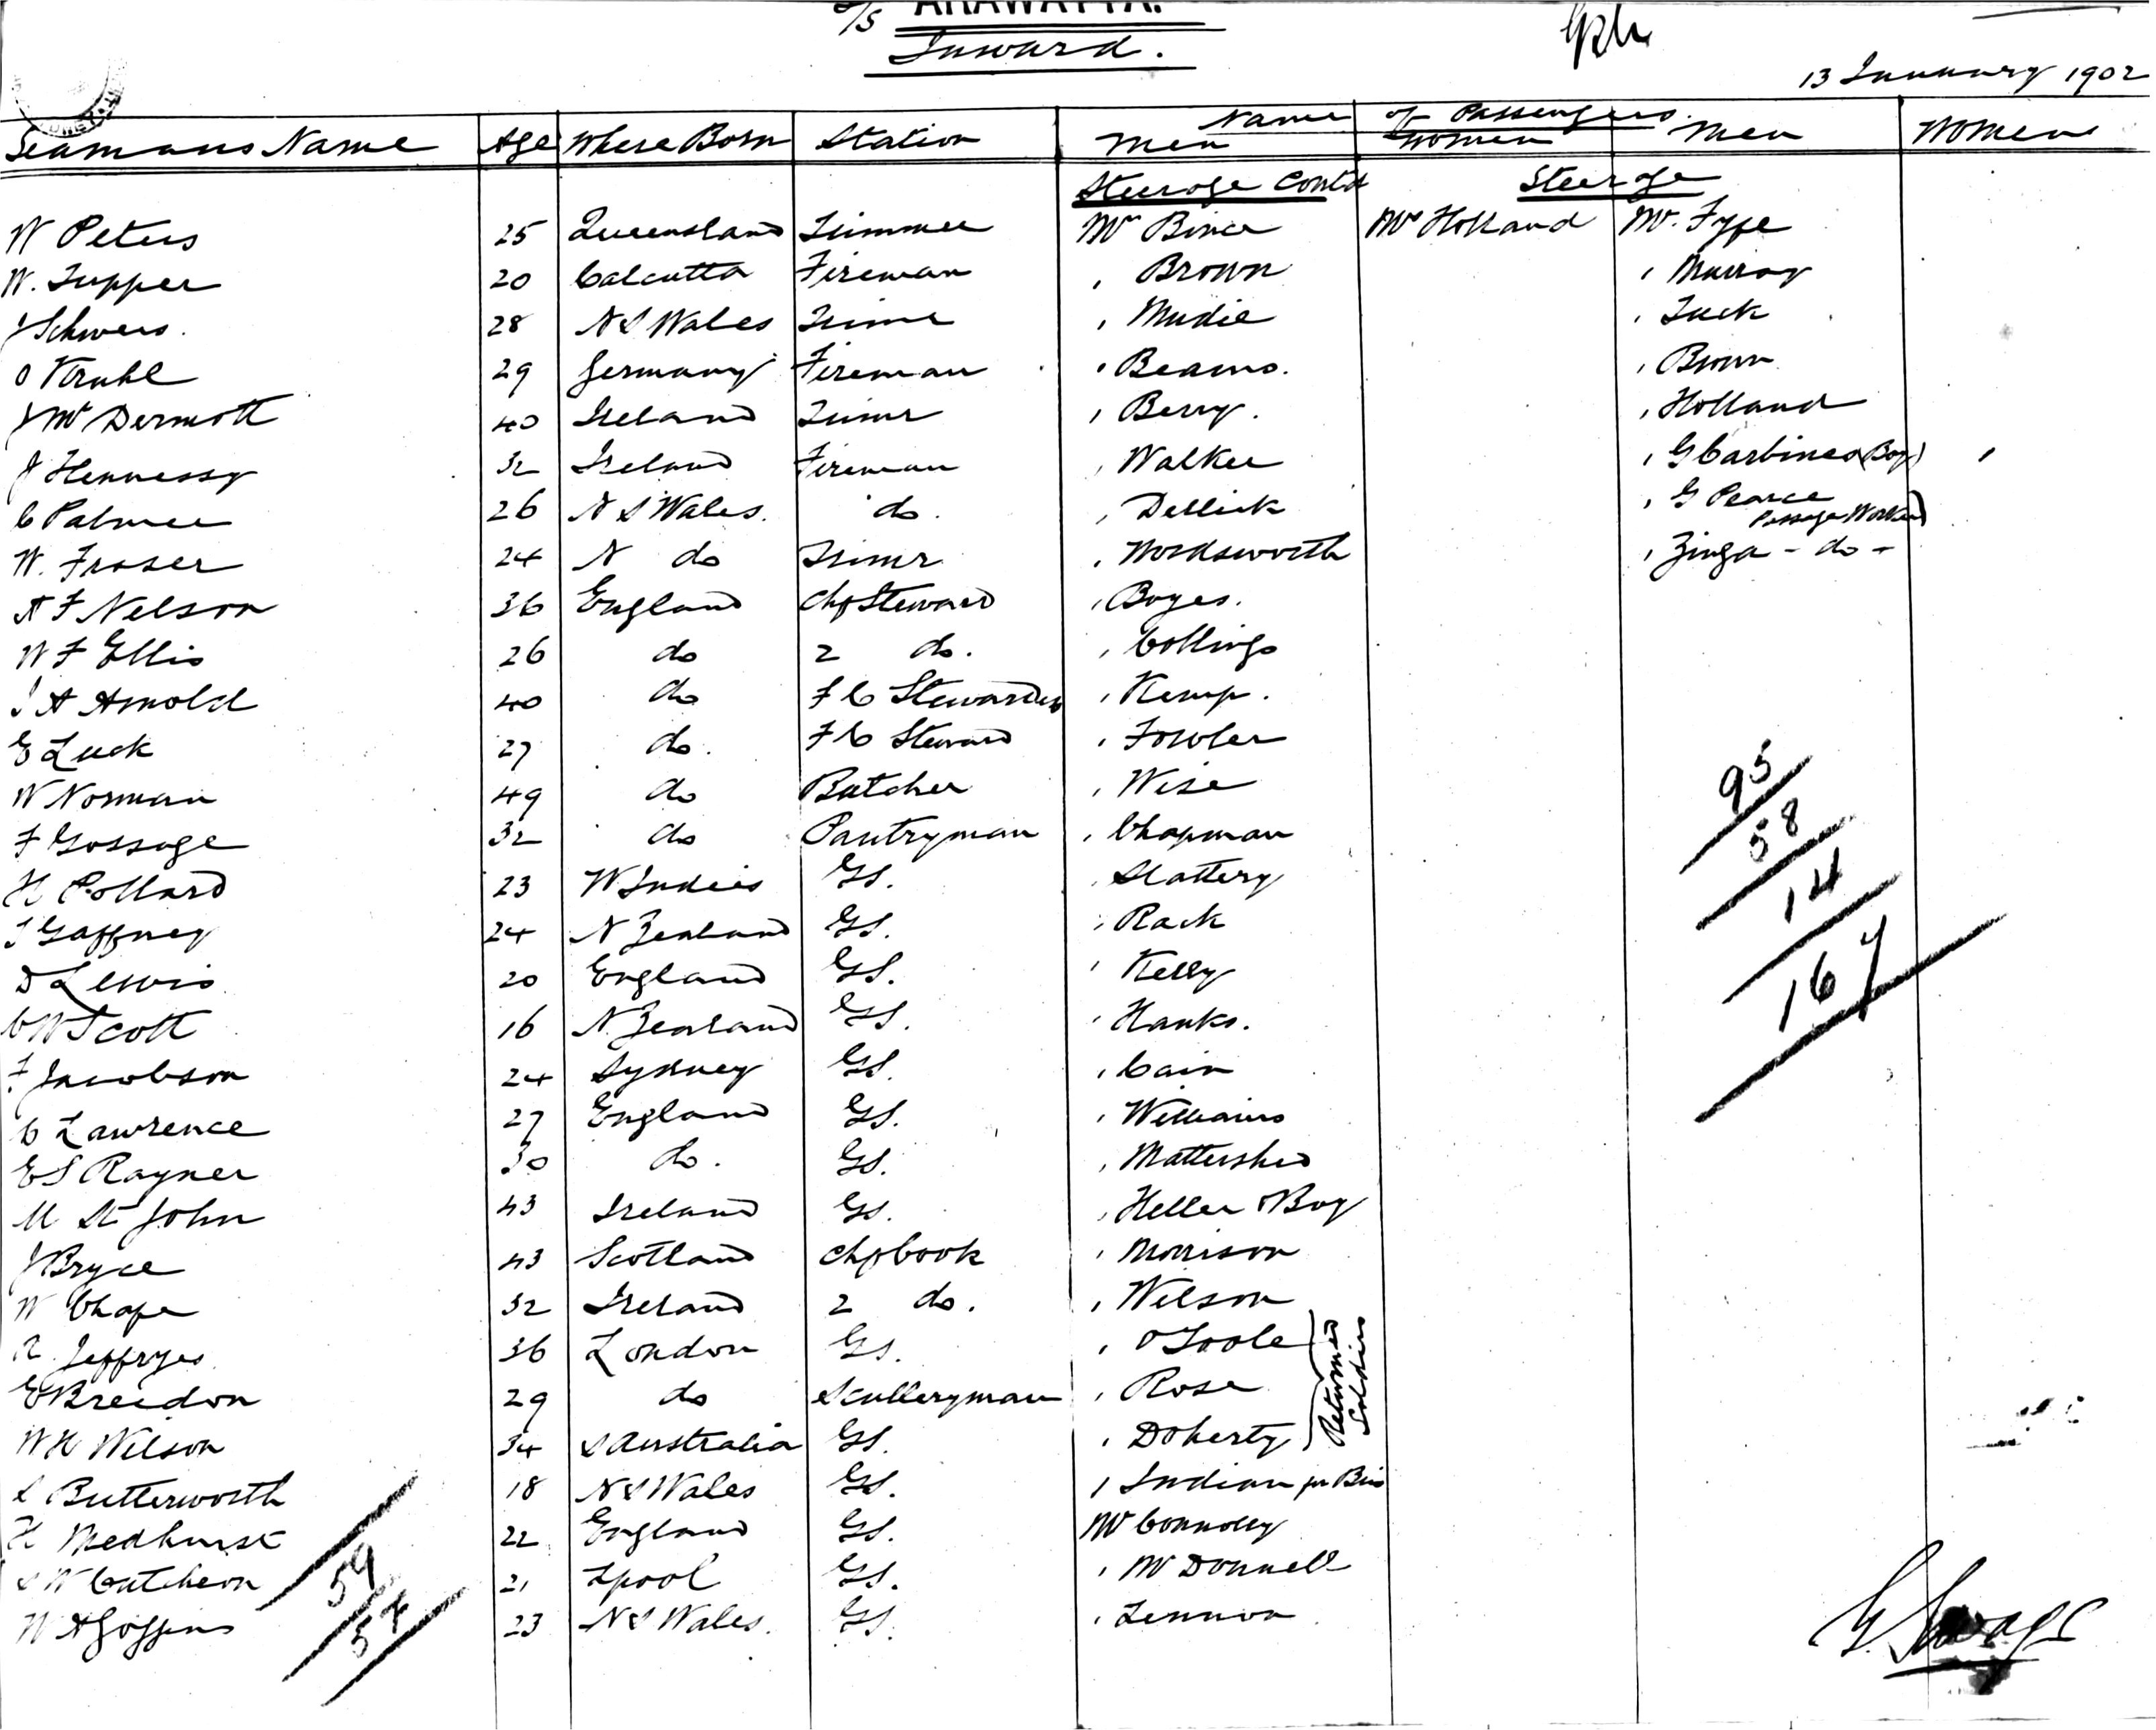 S/S ARAWATTA.
Inward.
13 January 1902
Name of Passengers
Seamans Name Age Where Born Station Men Women Men Women
Steerage Contd Steerage
W Peters 25 Queensland Trimmer Mr Bince Mrs Holland Mr. Fype
W. Tupper 20 Calcutta Fireman , Brown , Murray
J Schwers. 28 N S Wales Trimr , Mudie , Tuck
O Kruhl 29 Germany Fireman , Beams. , Brown
J McDermott 40 Ireland Trimr , Berry. , Holland
J Hennessy 32 Ireland Fireman , Walker , G Carbines (Boy)
C Palmer 26 N S Wales. do. , Dellick , G Pearce Passage Worked
W. Fraser 24 N do Trimr , Wordsworth , Zinga - do -
A F Nelson 36 England Chf Steward , Boyes.
W F Ellis 26 do 2 do. , Collings
J A Arnold 40 do F C Stewardess , Kemp.
E Luck 27 do. F C Steward , Fowler
W Norman 49 do Butcher , Wise
F Gossage 32 do Pantryman , Chapman
H Pollard 23 W Indies GS. , Slattery
J Gaffney 24 N Zealand GS. , Rack
D Lewis 20 England GS. , Kelly
C W Scott 16 N. Zealand GS. , Hanks.
F Jacobson 24 Sydney GS. , Cain
C Lawrence 27 England GS. , Williams
E S Rayner 30 do. GS. , Mattershed
M St John 43 Ireland GS. , Heller & Boy
J Bryce 43 Scotland Chf Cook , Morrison
W Chape 32 Ireland 2 do. , Wilson
R Jeffryes 36 London GS. , O'Toole
E Breedon 29 do Sculleryman , Rose
W H Wilson 34 S Australia GS. , Doherty
Returned Soldiers
S Butterworth 18 N S Wales GS. 1 Indian
H Medhurst 22 England GS. Mr Connolly
S W Cutcheon 21 Lpool GS. , McDonnell
W A Goffins 23 N S Wales. GS. , Lennon
95
58
14
167
59
58
G Savage